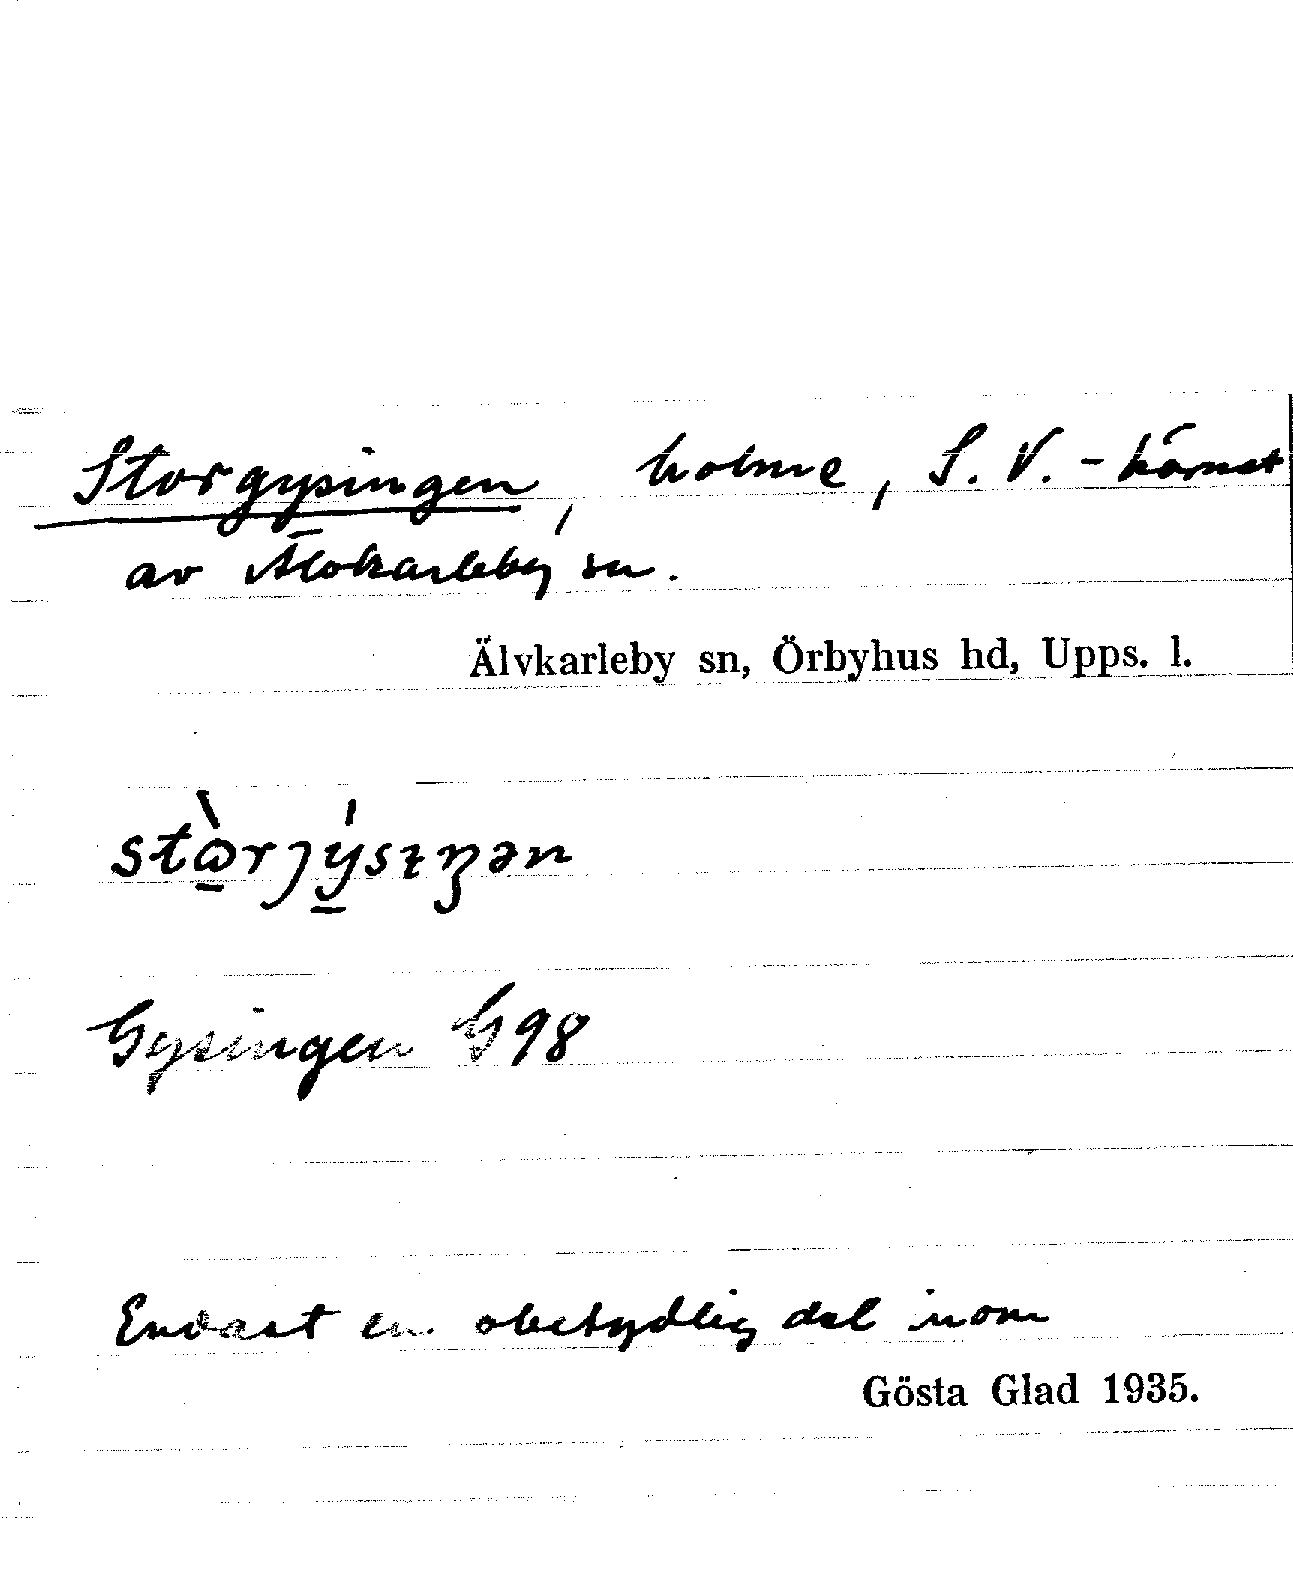 Storgysingen, holme, S.V.-hörnet
av Älvkarleby sn.
Älvkarleby sn, Örbyhus hd, Upps. l.
stⱷ̠̀rȷý̠sɪŋən
Gysingen G98
Endast en obetydlig del inom
Gösta Glad 1935.